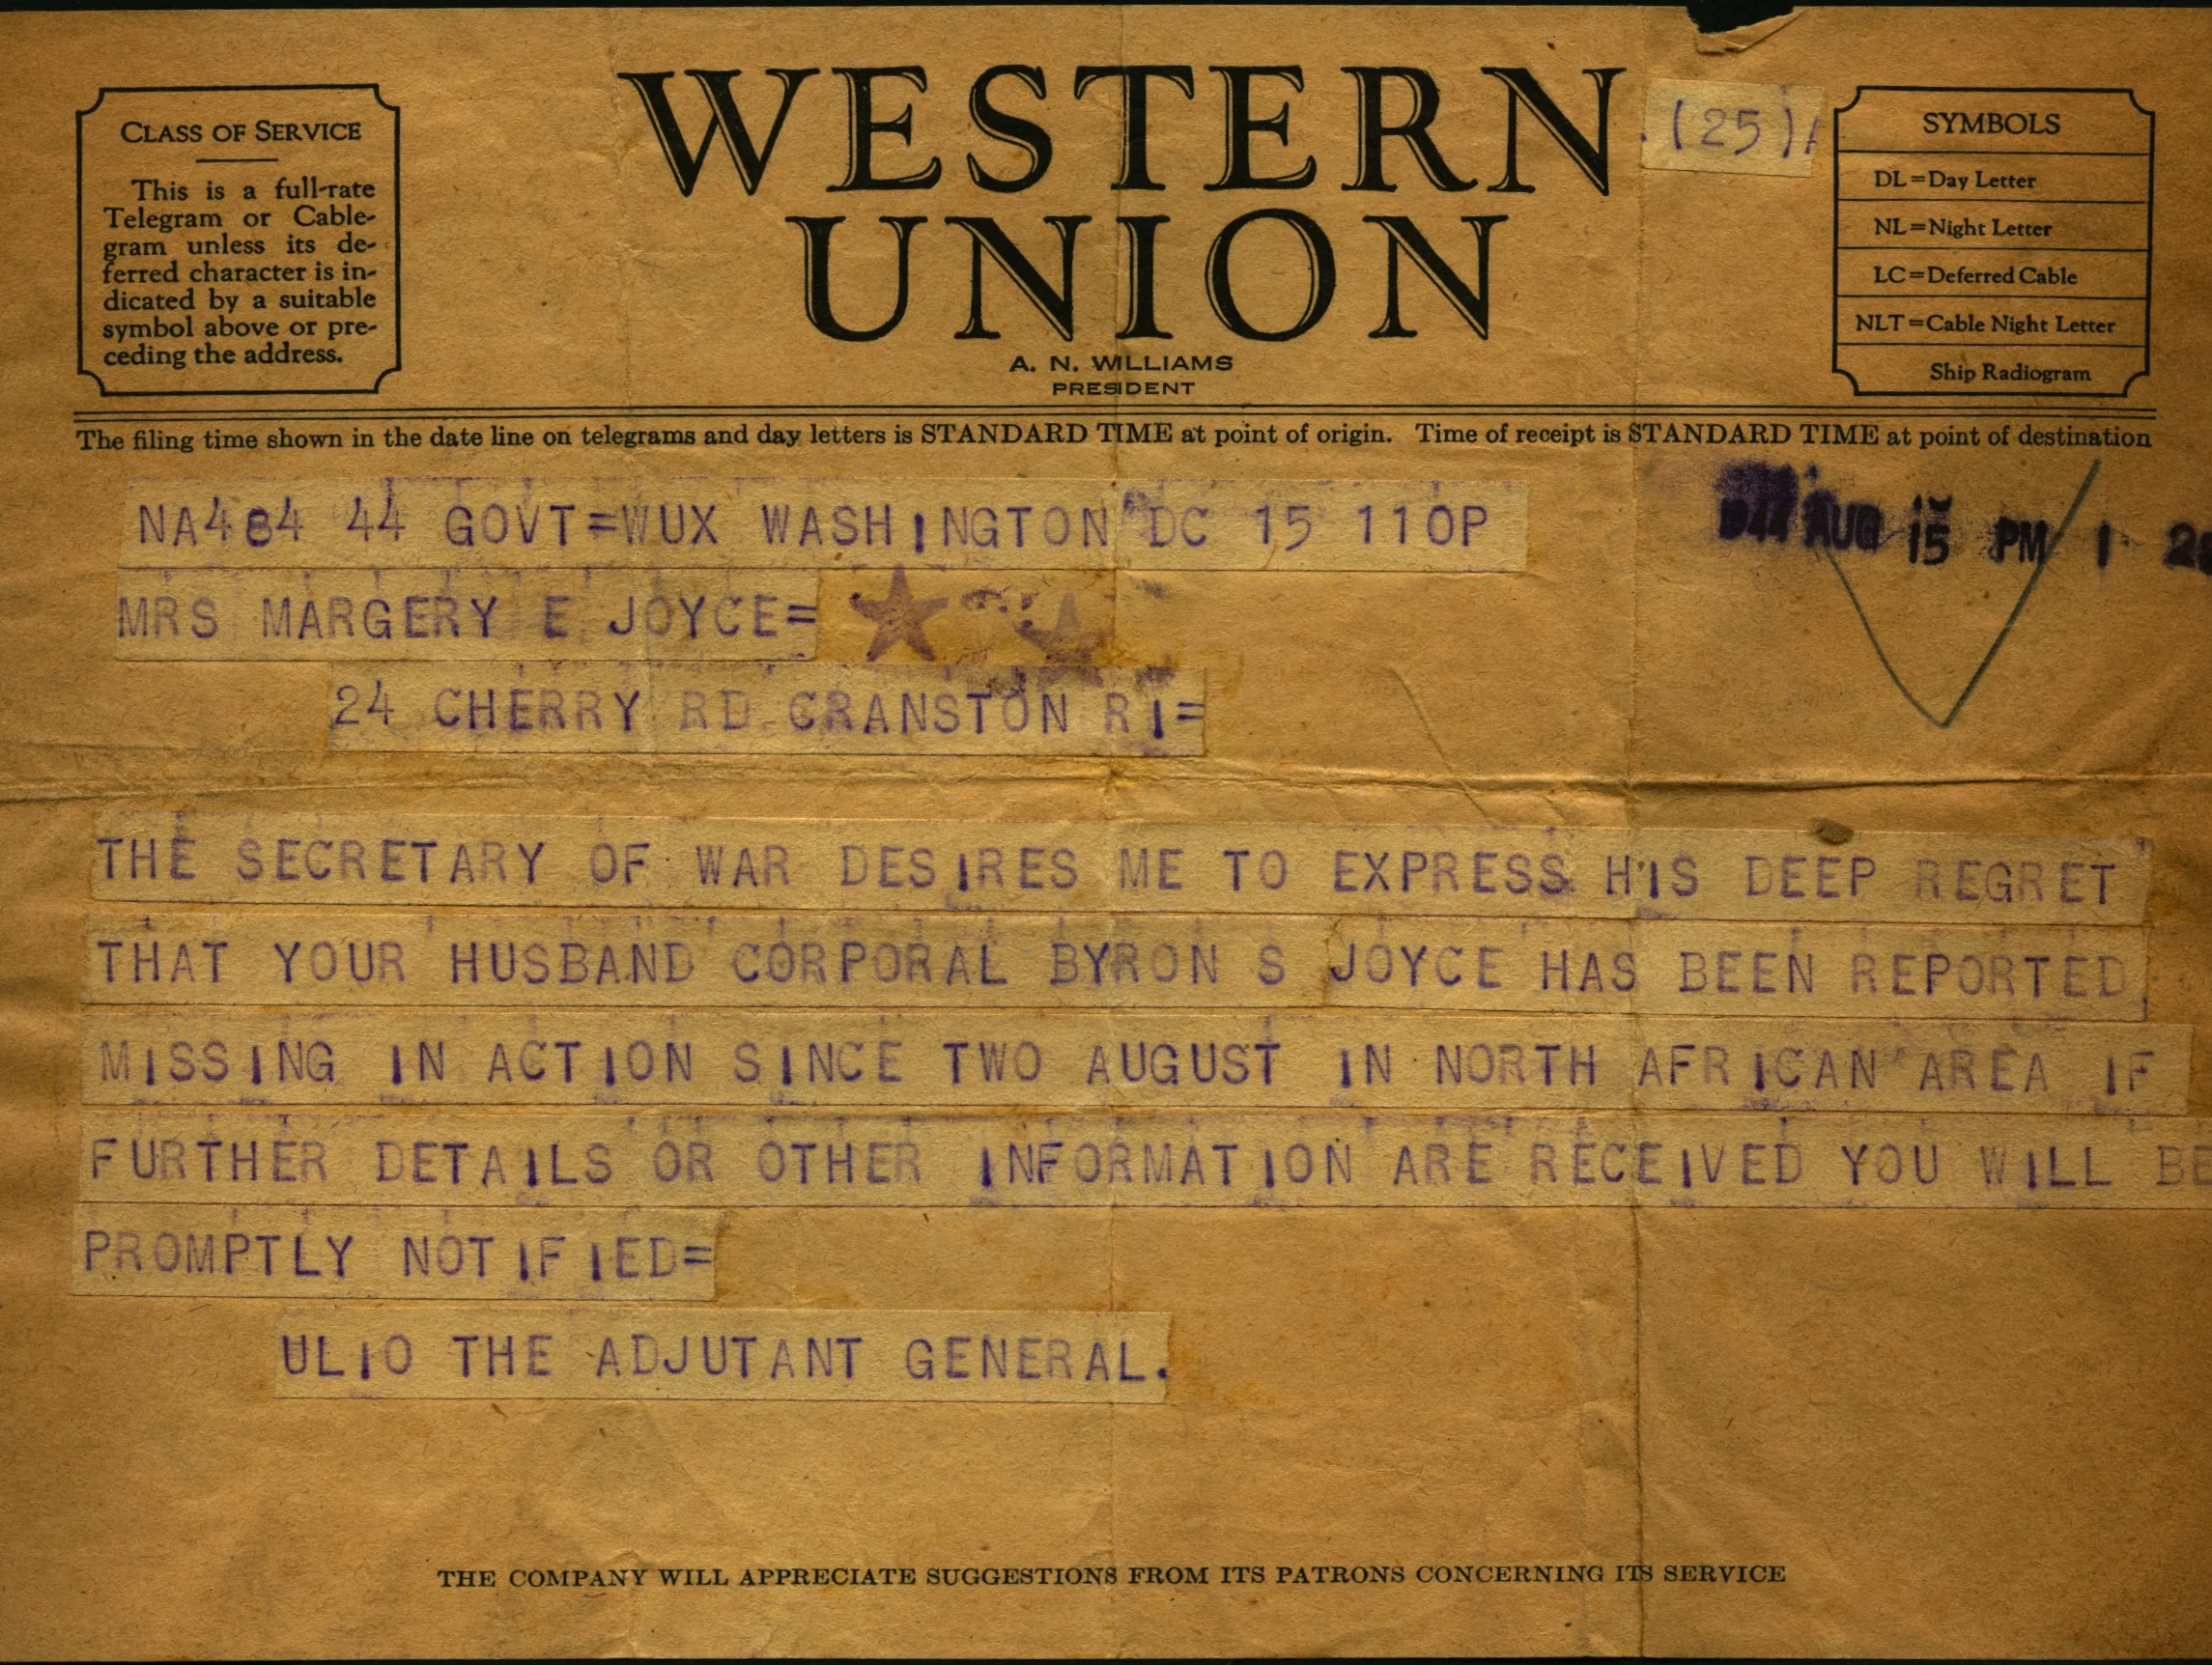 WESTERN
UNION
.(25)
A. N. WILLIAMS
PRESIDENT
CLASS OF SERVICE
This is a full-rate
Telegram or Cable-
gram unless its de-
ferred character is in-
dicated by a suitable
symbol above or pre-
ceding the address.
SYMBOLS
DL=Day Letter
NL=Night Letter
LC=Deferred Cable
NLT=Cable Night Letter
Ship Radiogram
The filing time shown in the date line on telegrams and day letters is STANDARD TIME at point of origin. Time of receipt is STANDARD TIME at point of destination
NA484 44 GOVT=WUX WASHINGTON DC 15 110P
AUG 15 PM 1
MRS MARGERY E JOYCE=
24 CHERRY RD CRANSTON RI=
THE SECRETARY OF WAR DESIRES ME TO EXPRESS HIS DEEP REGRET
THAT YOUR HUSBAND CORPORAL BYRON S JOYCE HAS BEEN REPORTED
MISSING IN ACTION SINCE TWO AUGUST IN NORTH AFRICAN AREA IF
FURTHER DETAILS OR OTHER INFORMATION ARE RECEIVED YOU WILL BE
PROMPTLY NOTIFIED=
ULIO THE ADJUTANT GENERAL.
THE COMPANY WILL APPRECIATE SUGGESTIONS FROM ITS PATRONS CONCERNING ITS SERVICE